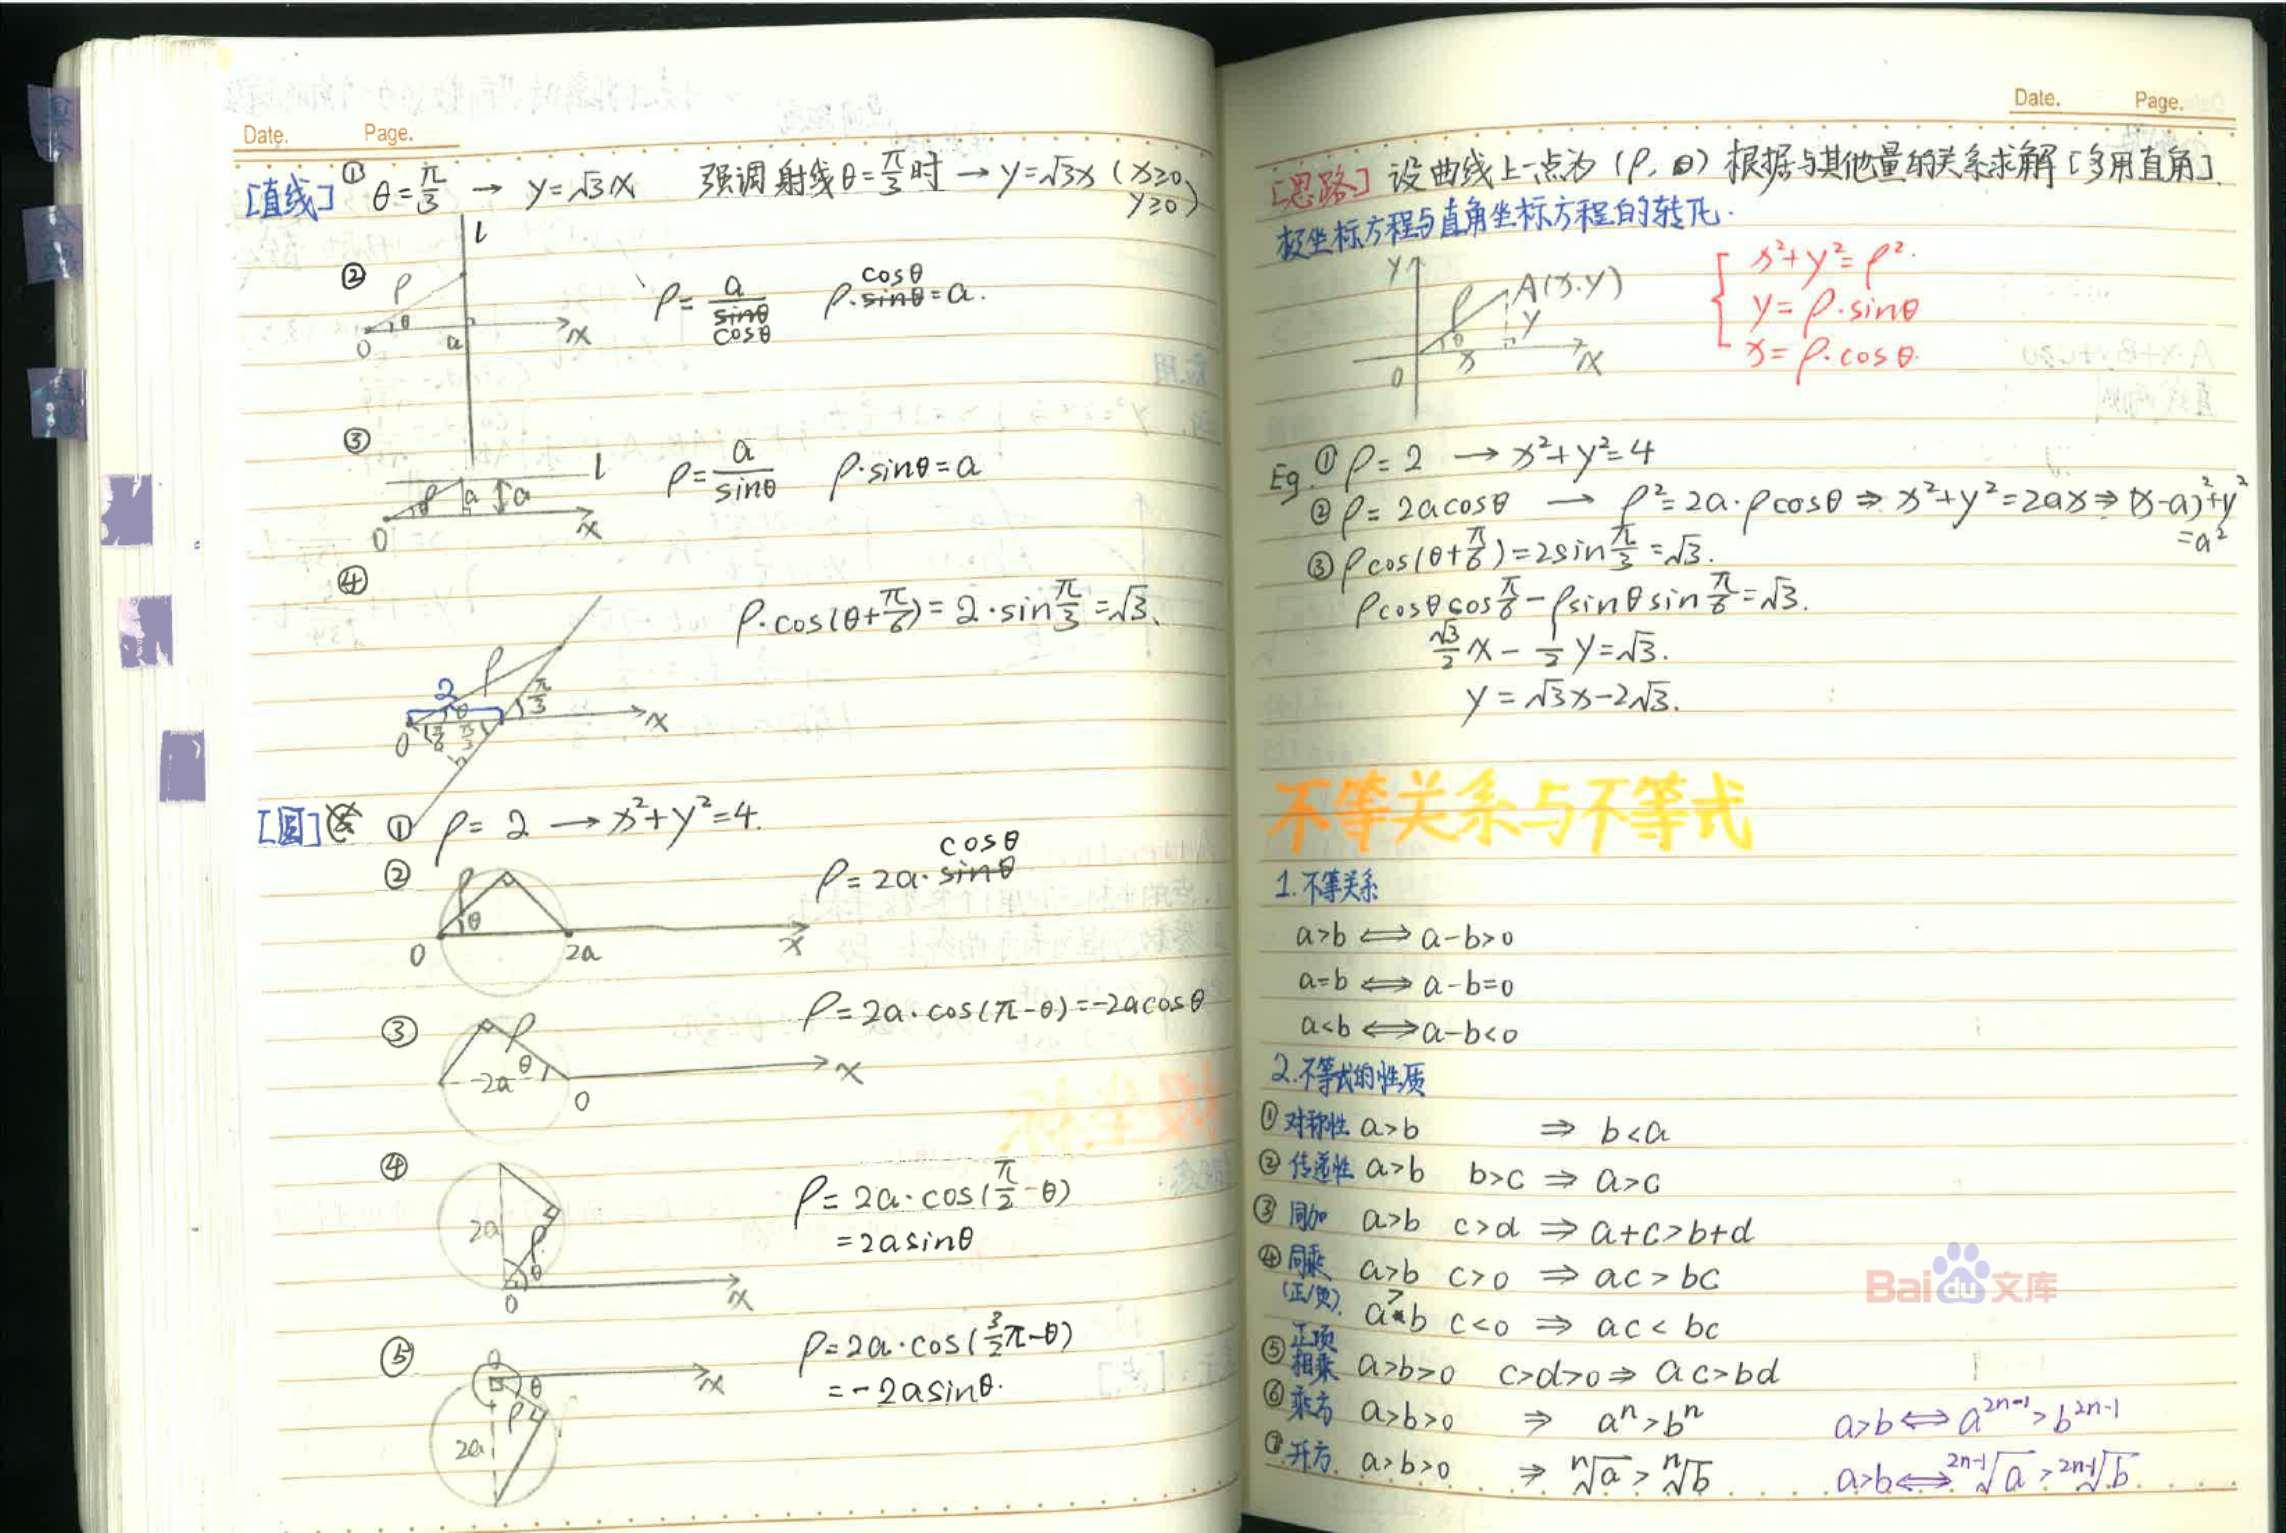 Date. Page.
[直线] ① θ=π/3 → y=√3x 强调射线θ=π/3时 → y=√3x (x≥0,
y≥0)
l
② ρ θ O a x
ρ=a/sinθ cosθ ρ·sinθ=a. cosθ
③ l
ρ θ a a O x
ρ=a/sinθ ρ·sinθ=a
④ ρ·cos(θ+π/6)=2·sinπ/3=√3.
ρ 2 θ π/3 π/6 π/3 O x
[圆] ① ρ=2 → x²+y²=4.
② ρ=2a·sinθ cosθ
ρ θ O 2a x
③ ρ=2a·cos(π-θ)=-2acosθ
ρ θ 2a O x
④ ρ=2a·cos(π/2-θ)
=2asinθ
2a ρ θ O x
⑤ ρ=2a·cos(3/2π-θ)
=-2asinθ.
O θ ρ 2a x
Date. Page.
[思路] 设曲线上一点为(ρ,θ)根据与其他量的关系求解[多用直角].
极坐标方程与直角坐标方程的转化.
y ρ A(x.y) y θ x O x
x²+y²=ρ².
y=ρ·sinθ
x=ρ·cosθ.
Eg. ① ρ=2 → x²+y²=4
② ρ=2acosθ → ρ²=2a·ρcosθ ⇒ x²+y²=2ax ⇒ (x-a)²+y²
=a²
③ ρcos(θ+π/6)=2sinπ/3=√3.
ρcosθcosπ/6-ρsinθsinπ/6=√3.
√3/2x-1/2y=√3.
y=√3x-2√3.
不等关系与不等式
1.不等关系
a>b ⟺ a-b>0
a=b ⟺ a-b=0
a<b ⟺ a-b<0
2.不等式的性质
① 对称性 a>b ⇒ b<a
② 传递性 a>b b>c ⇒ a>c
③ 同加 a>b c>d ⇒ a+c>b+d
④ 同乘 a>b c>0 ⇒ ac>bc
(正/负). a>b c<0 ⇒ ac<bc
⑤ 正项相乘 a>b>0 c>d>0 ⇒ ac>bd
⑥ 乘方 a>b>0 ⇒ aⁿ>bⁿ a>b ⟺ a²ⁿ⁻¹>b²ⁿ⁻¹
⑦ 开方 a>b>0 ⇒ ⁿ√a>ⁿ√b a>b ⟺ ²ⁿ⁻¹√a>²ⁿ⁻¹√b
Baidu文库